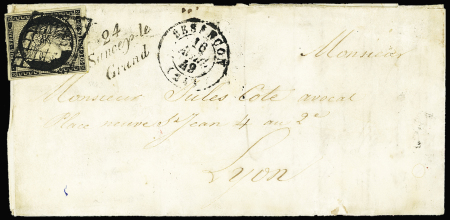 24
Sancey-le
Grand
BESANCON
16
49
(24)
Monsieur
Monsieur Jules Coté avocat
Place neuve St Jean 4 au 2e
Lyon